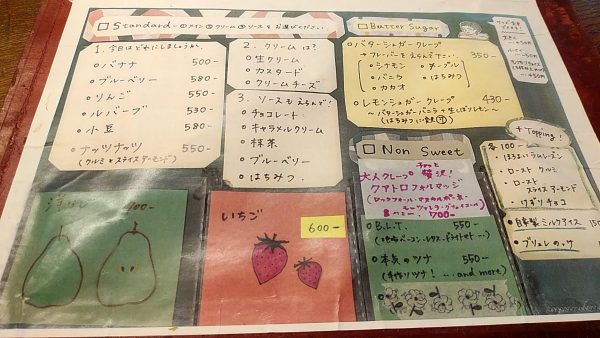 □ Standard →①メイン②クリーム③ソースをお選びください
1. 今日はどれにしましょうか。
○ バナナ 500-
○ ブルーベリー 580
○ りんご 550
○ ルバーブ 530-
○ 小豆 580-
○ ナッツナッツ 550-
(クルミとスライスアーモンド)
2. クリームは?
○ 生クリーム
○ カスタード
○ クリームチーズ
3. ソースもえらんで!
○ チョコレート
○ キャラメルクリーム
○ 抹茶
○ ブルーベリー
○ はちみつ
□ Butter Sugar
○ バターシュガークレープ 350-
→フレーバーをえらんで下さい
○ シナモン
○ バニラ
○ はちみつ
○ カカオ
○ レモンシュガークレープ 430-
～バターシュガーバニラ+生しぼりレモン～
□ Non Sweet
大人クレープ 贅沢!
クアトロフォルマッジ
700-
○ B.L.T. 550-
○ 本気のツナ 550-
(手作りツナ! ...and more)
+Topping!
各100-
○ ほろよいラムレーズン
○ ロースト クルミ
○ ロースト
スライスアーモンド
○ けずりチョコ
○ 自家製ミルクアイス 150
○ ブリュレのっけ
洋なし
いちご
600-